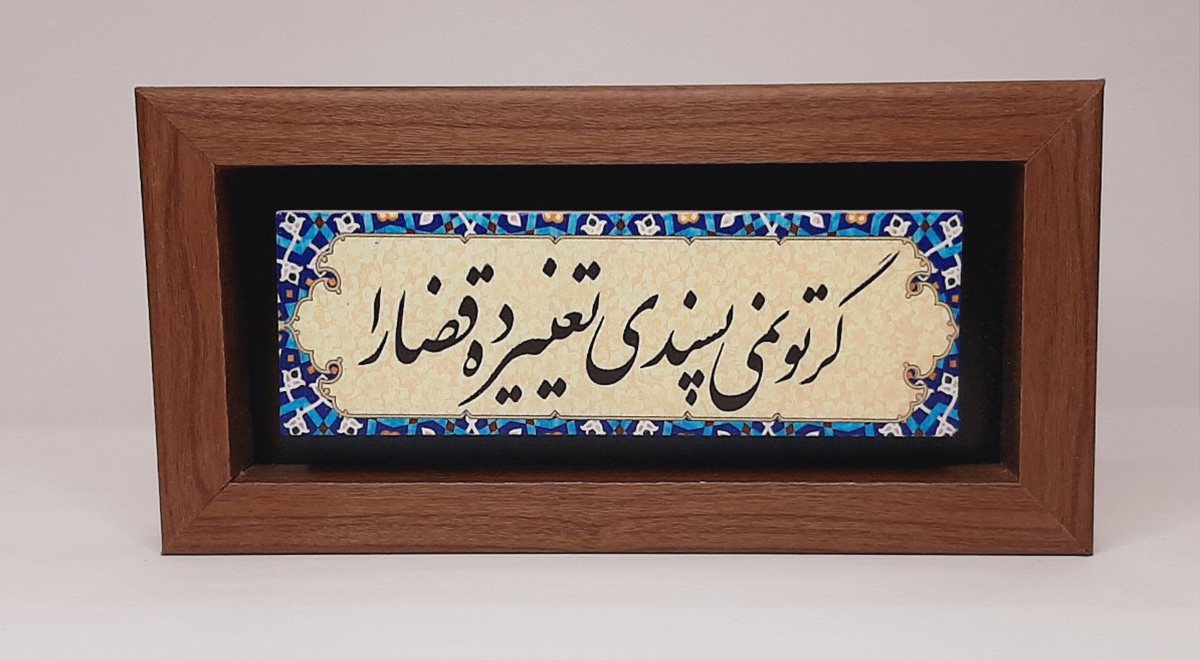 گر تو نمی پسندی تغییر ده قضا را